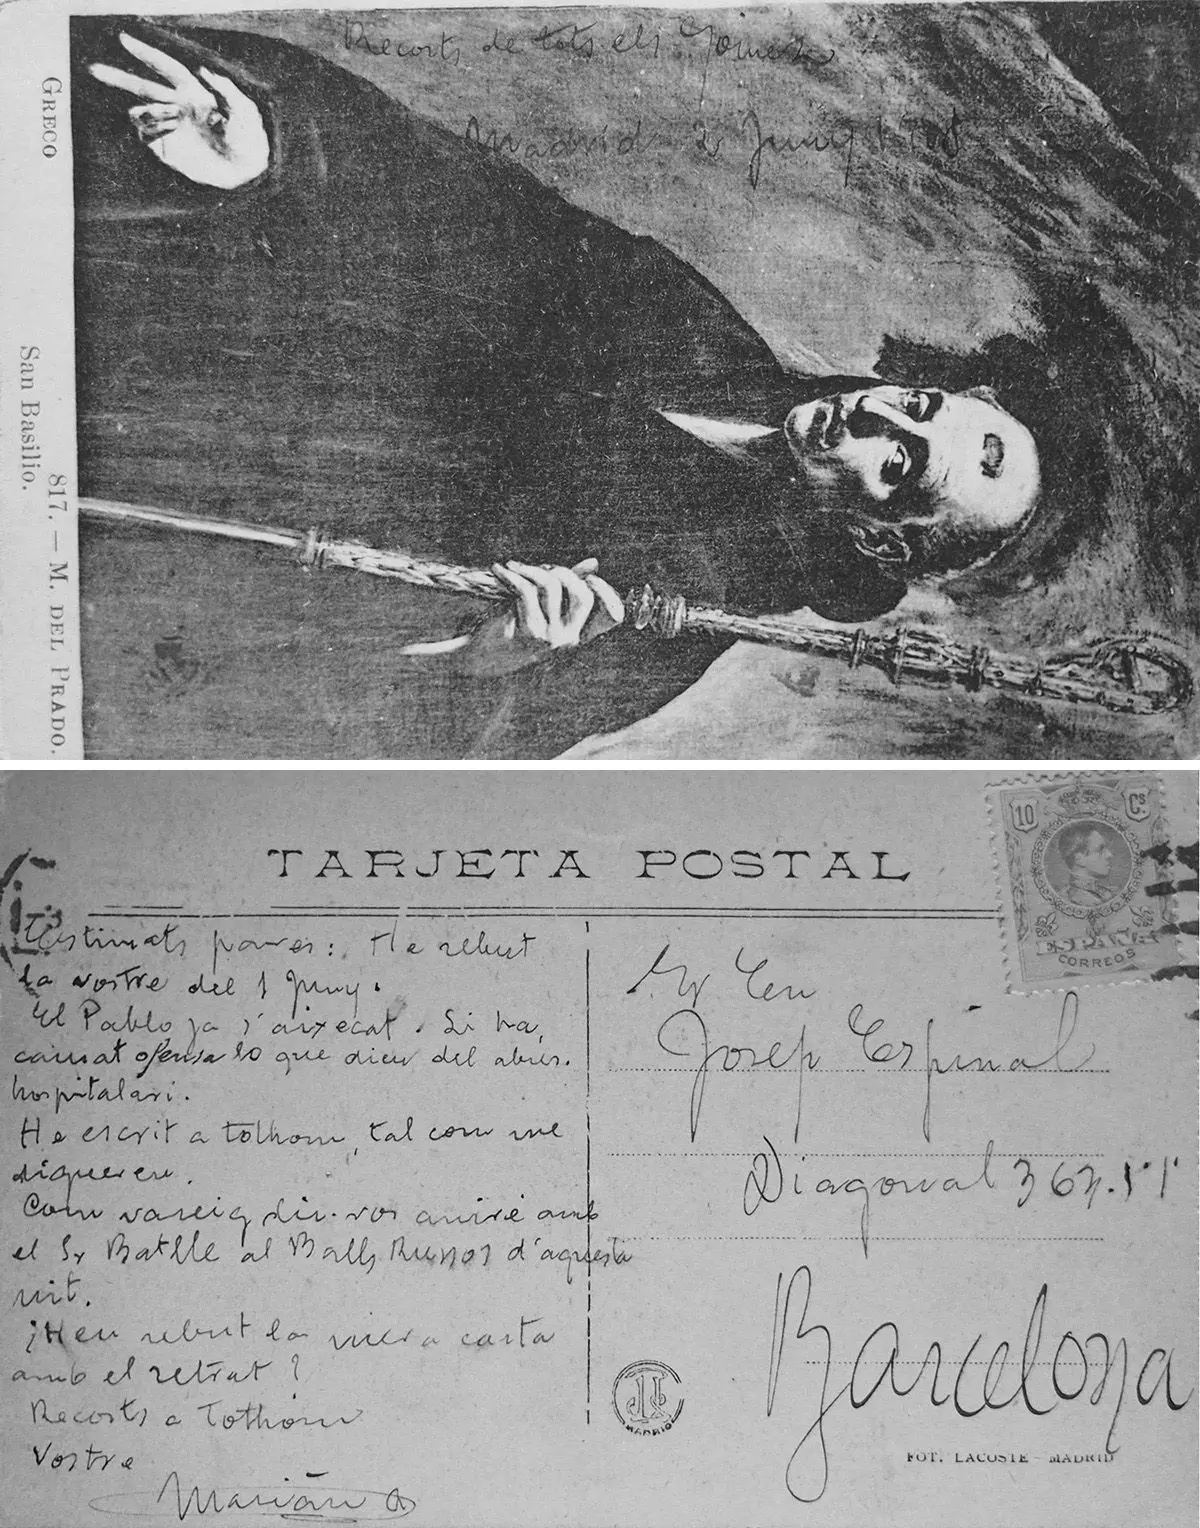 Recorts de tots els Gomes
Madrid 2 Juny 1918
GRECO
817. — M. DEL PRADO.
San Basilio.
TARJETA POSTAL
10 Cs
ESPAÑA
CORREOS
Estimats pares: He rebut
la vostre del 1 Juny.
El Pablo ja s'aixecat. Si ha
causat ofensa lo que dieu del
hospitalari.
He escrit a tothom, tal com me
diguereu.
Com vareig dir-vos aniré amb
el Sr Batlle al Balls Russos d'aquesta
nit.
¿Heu rebut la meva carta
amb el retrat?
Recorts a Tothom
Vostre
Marián
Sr En
Josep Espinal
Diagonal 367. 1º 1ª
Barcelona
MADRID
FOT. LACOSTE - MADRID